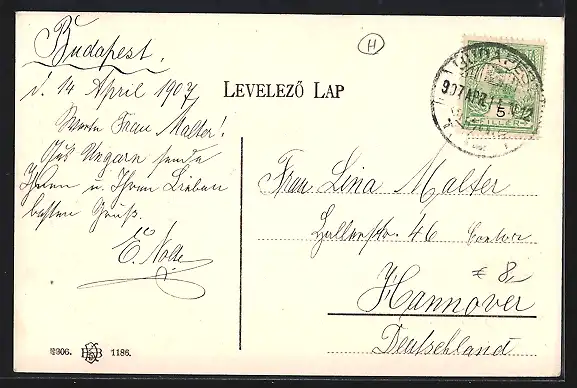 Budapest.
d. 14 April 1907
LEVELEZŐ LAP
H
Werte Frau Malter!
Aus Ungarn sende
Ihnen u. Ihren Lieben
besten Gruß.
E. Nolte
907 APR 14
5
FILLÉR
Frau Lina Malter
Hallerstr. 46
€ 8,-
Hannover
Deutschland
1906. 1186.